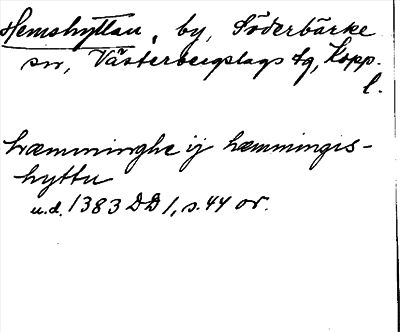 Hemshyttan, by, Söderbärke
sn, Västerbergslags tg, Kopp.
l.
hæmminghe ij hæmmingis-
hyttu
u.d. 1383 DD 1, s. 44 or.